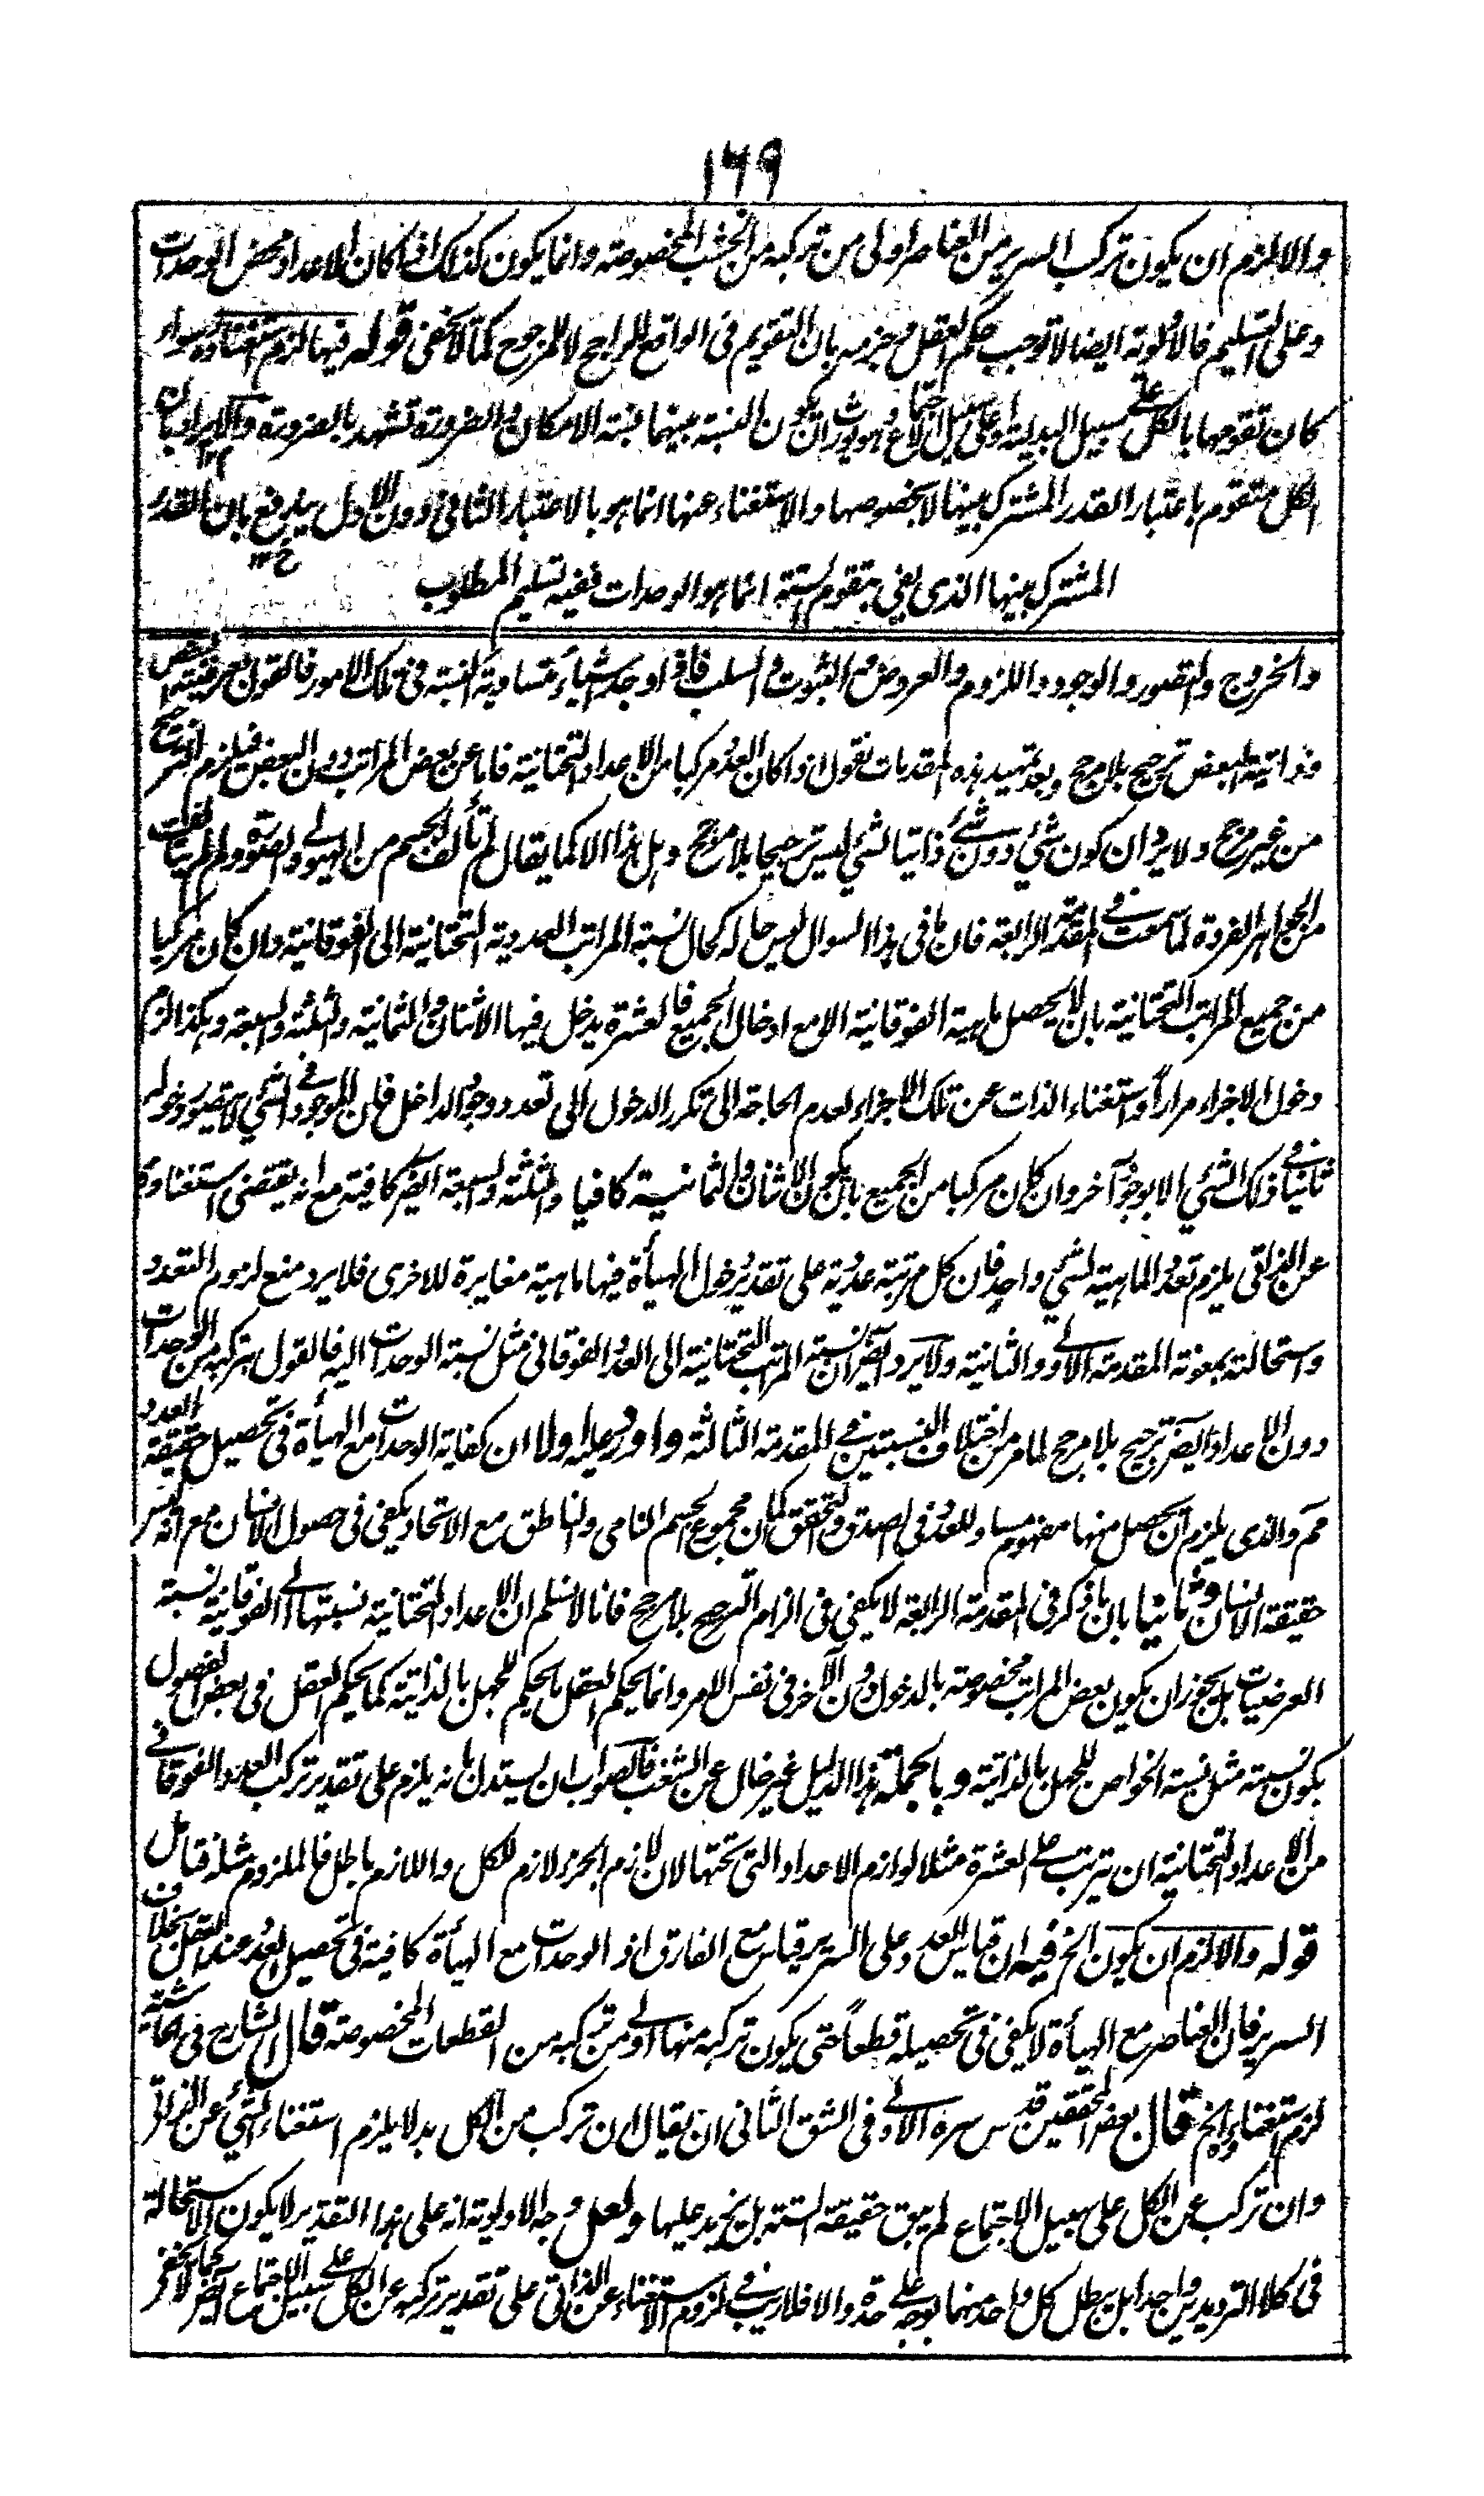 ١٦٩
والا لزم ان يكون تركب السرير من العناصر اولى من تركبه من الخشب المخصوصة وانما يكون كذلك اذا كان الاعداد محض الوحدات
وعلى التسليم فالاولوية ايضا لا توجب حكم العقل وجزمه بان التقويم فى الواقع للراجح لا للمرجوح كما لا يخفى قوله فيها لزم استغناؤه سواء
كان تقومها بالكل على سبيل البدلية او على سبيل الاجتماع وهو يورث ان يكون النسبة بينهما نسبة الامكان والضرورة تشهد بالضرورة والايراد بان
الكل متقوم باعتبار القدر المشترك بينها لا بخصوصها والاستغناء عنها انما هو بالاعتبار الثانى دون الاول يندفع بان القدر
المشترك بينها الذى يفى بتقوم الستة انما هو الوحدات ففيه تسليم المطلوب
والخروج والتصور والوجود واللزوم والعروض والثبوت والسلب فاذا وجد اشياء متساوية النسبة فى تلك الامور فالقول بعرضية البعض
وذاتية البعض ترجيح بلا مرجح وبعد تمهيد هذه المقدمات نقول اذا كان العدد مركبا من الاعداد التحتانية فاما عن بعض المراتب دون البعض فيلزم الترجيح
من غير مرجح ولا يرد ان كون شئ دون شئ ذاتيا لشئ ليس ترجيحا بلا مرجح وهل هذا الا كما يقال لم تألف الجسم من الهيولى والصورة ولم لم يتألف
من الجواهر الفردة لما سمعت فى المقدمة الرابعة فان ما فى هذا السوال ليس حاله كحال نسبة المراتب العددية التحتانية الى الفوقانية وان كان مركبا
من جميع المراتب التحتانية بان لا يحصل ماهية الفوقانية الا مع ادخال الجميع فالعشرة يدخل فيها الاثنان والثمانية والثلثة والسبعة وهكذا لزم
دخول الاجزاء مرارا واستغناء الذات عن تلك الاجزاء لعدم الحاجة الى تكرر الدخول الى تعدد وجود الداخل فان الموجود فى الشئ لا يتصور دخوله
ثانيا فى ذلك الشئ الا بوجود آخر وان كان مركبا من الجميع بان يكون الاثنان والثمانية كافيا والثلثة والسبعة ايضا كافية مع انه يقتضى استغناؤه
عن الذاتى يلزم تعدد الماهية لشئ واحد فان كل مرتبة عددية على تقدير دخول الهيأة فيها ماهية مغايرة للاخرى فلا يرد منع لزوم التعدد
واستحالته بمعونة المقدمة الاولى والثانية ولا يرد ايضا ان نسبة المراتب التحتانية الى العدد الفوقانى مثل نسبة الوحدات اليه فالقول بتركبه من الوحدات
دون الاعداد ايضا ترجيح بلا مرجح لما مر من اختلاف النسبتين فى المقدمة الثالثة واورد عليه اولا ان كفاية الوحدات مع الهيأة فى تحصيل حقيقة العدد
مم والذى يلزم ان يحصل منها مفهوم مساو للعدد فى الصدق والتحقق كما ان مجموع الجسم النامى والناطق مع الاتحاد يكفى فى حصول الانسان مع انه ليس
حقيقة الانسان وثانيا بان ما ذكر فى المقدمة الرابعة لا يكفى فى الزام الترجيح بلا مرجح فانا لا نسلم ان الاعداد التحتانية نسبتها الى الفوقانية نسبة
العرضيات بل يجوز ان يكون بعض المراتب مخصوصة بالدخول دون الآخر فى نفس الامر وانما يحكم العقل بالحكم للجهل بالذاتية كما يحكم العقل فى بعض الفصول
بكون نسبته مثل نسبة الخواص للجهل بالذاتية وبالجملة هذا الدليل غير خال عن الشغب فالصواب ان يستدل بانه يلزم على تقدير تركب العدد الفوقانى
من الاعداد التحتانية ان يترتب على العشرة مثلا لوازم الاعداد التى تحتها لان لازم الجزء لازم للكل واللازم باطل فالملزوم مثله فتأمل
قوله والا لزم ان يكون الخ فيه ان قياس العدد على السرير قياس مع الفارق اذ الوحدات مع الهيأة كافية فى تحصيل العدد عند العقل بخلاف
السرير فان العناصر مع الهيأة لا يكفى فى تحصيله قطعا حتى يكون تركبه منها اولى من تركبه من القطعات المخصوصة قال الشارح فى حاشيته
لزم استغناؤه الخ قال بعض المحققين قدس سره الاولى فى الشق الثانى ان يقال ان تركب من الكل بدلا يلزم استغناء الشئ عن الذاتى
وان تركب عن الكل على سبيل الاجتماع لم يبق حقيقة الستة بل يزيد عليها ولعل وجه الاولوية انه على هذا التقدير لا يكون الاستحالة
فى كلا الترديدين واحدا بل يبطل كل واحد منهما بوجه على حدة والا فلا ريب فى لزوم الاستغناء عن الذاتى على تقدير تركبه عن الكل على سبيل الاجتماع ايضا كما لا يخفى